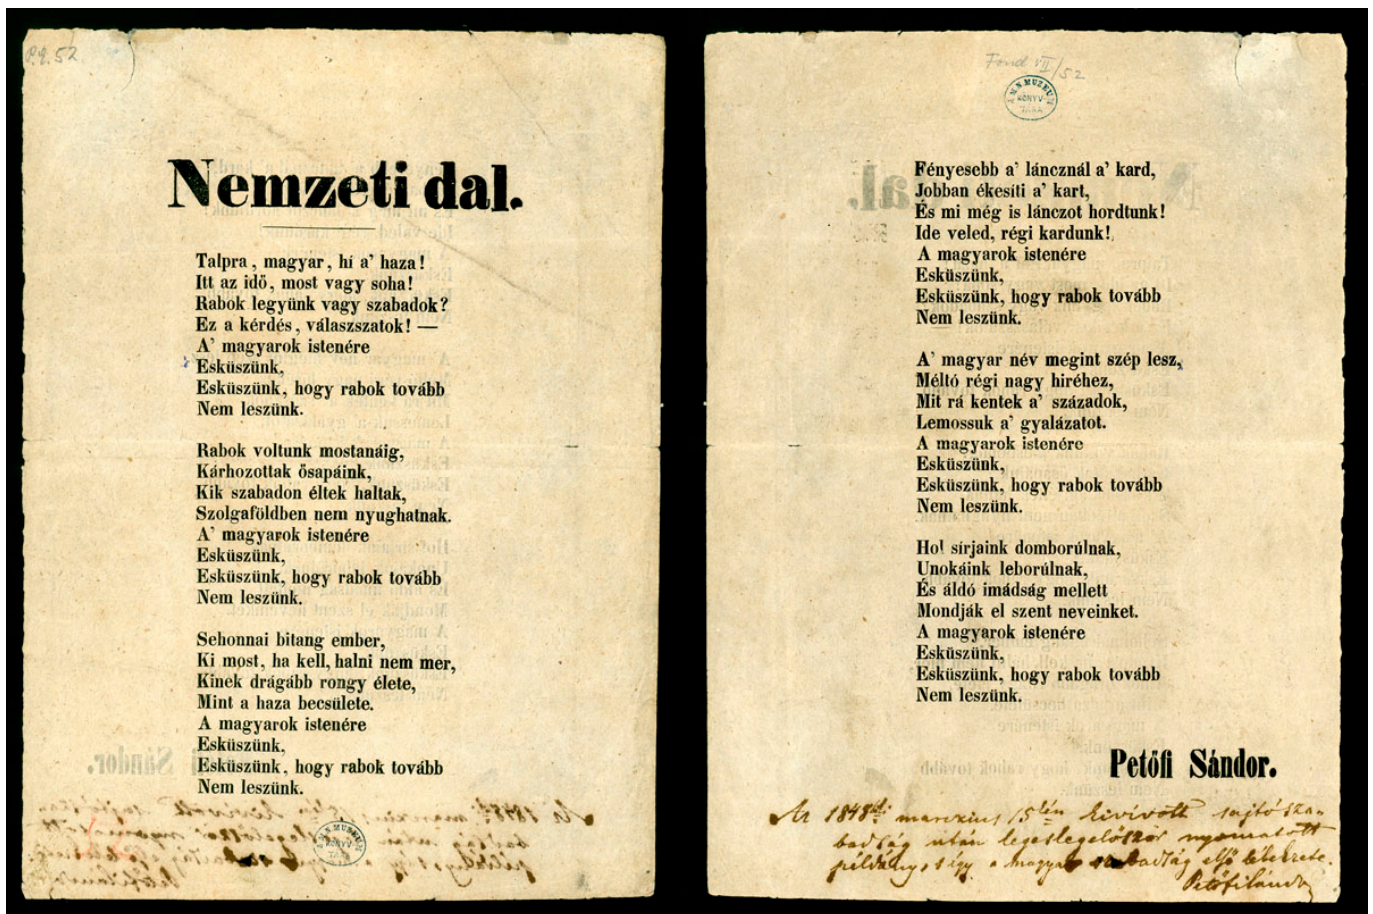 P.q.52
Nemzeti dal.
Talpra, magyar, hí a' haza!
Itt az idő, most vagy soha!
Rabok legyünk vagy szabadok?
Ez a kérdés, válaszszatok! —
A' magyarok istenére
Esküszünk,
Esküszünk, hogy rabok tovább
Nem leszünk.
Rabok voltunk mostanáig,
Kárhozottak ősapáink,
Kik szabadon éltek haltak,
Szolgaföldben nem nyughatnak.
A' magyarok istenére
Esküszünk,
Esküszünk, hogy rabok tovább
Nem leszünk.
Sehonnai bitang ember,
Ki most, ha kell, halni nem mer,
Kinek drágább rongy élete,
Mint a haza becsülete.
A magyarok istenére
Esküszünk,
Esküszünk, hogy rabok tovább
Nem leszünk.
M. N. MUZEUM
KÖNYV-
TÁRA
Fond VII/52
M. N. MUZEUM
KÖNYV-
TÁRA
Fényesebb a' láncznál a' kard,
Jobban ékesíti a' kart,
És mi még is lánczot hordtunk!
Ide veled, régi kardunk!
A magyarok istenére
Esküszünk,
Esküszünk, hogy rabok tovább
Nem leszünk.
A' magyar név megint szép lesz,
Méltó régi nagy hiréhez,
Mit rá kentek a' századok,
Lemossuk a' gyalázatot.
A magyarok istenére
Esküszünk,
Esküszünk, hogy rabok tovább
Nem leszünk.
Hol sírjaink domborúlnak,
Unokáink leborúlnak,
És áldó imádság mellett
Mondják el szent neveinket.
A magyarok istenére
Esküszünk,
Esküszünk, hogy rabok tovább
Nem leszünk.
Petőfi Sándor.
Az 1848diki marczius 15kén kivívott sajtósza-
badság után legeslegelőször nyomatott
példány, s így a magyar szabadság első lélekzete.
Petőfi Sándor